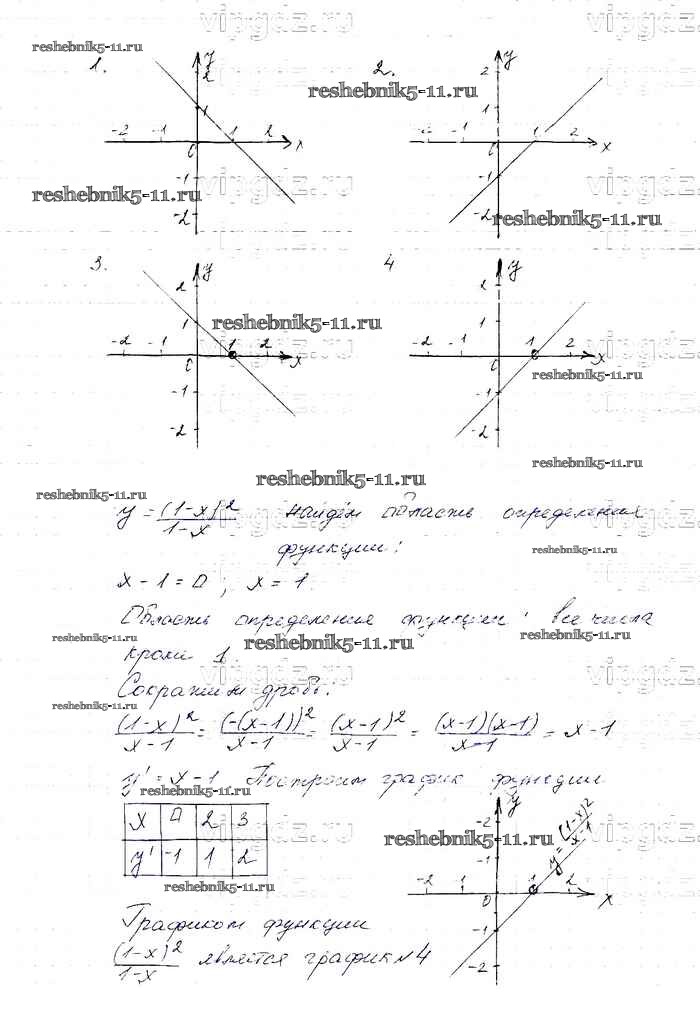 vipgdz.ru vipgdz.ru
reshebnik5-11.ru
1. y 2. y
reshebnik5-11.ru
2 2
1 1
-2 -1 0 1 2 x -2 -1 0 1 2 x
-1 -1
vipgdz.ru vipgdz.ru
reshebnik5-11.ru
-2 -2
reshebnik5-11.ru
3. y 4 y
2 2
reshebnik5-11.ru
1 1
-2 -1 0 1 2 x -2 -1 0 1 2 x
vipgdz.ru vipgdz.ru
reshebnik5-11.ru
-1 -1
-2 -2
reshebnik5-11.ru
reshebnik5-11.ru
reshebnik5-11.ru
y = (1-x)²/1-x найдём область определения
vipgdz.ru vipgdz.ru
функции:
reshebnik5-11.ru
x - 1 = 0; x = 1.
Область определения функции: все числа
reshebnik5-11.ru reshebnik5-11.ru reshebnik5-11.ru
кроме 1.
vipgdz.ru vipgdz.ru
Сократим дробь:
reshebnik5-11.ru
(1-x)²/x-1 = (-(x-1))²/x-1 = (x-1)²/x-1 = (x-1)(x-1)/x-1 = x-1
y' = x-1 Построим график функции
reshebnik5-11.ru
x 0 2 3
y' -1 1 2
vipgdz.ru vipgdz.ru
reshebnik5-11.ru
y
-2
-1
y = (1-x)²/x-1
-2 -1 0 1 2 x
-1
-2
reshebnik5-11.ru
Графиком функции
(1-x)²/1-x является график №4